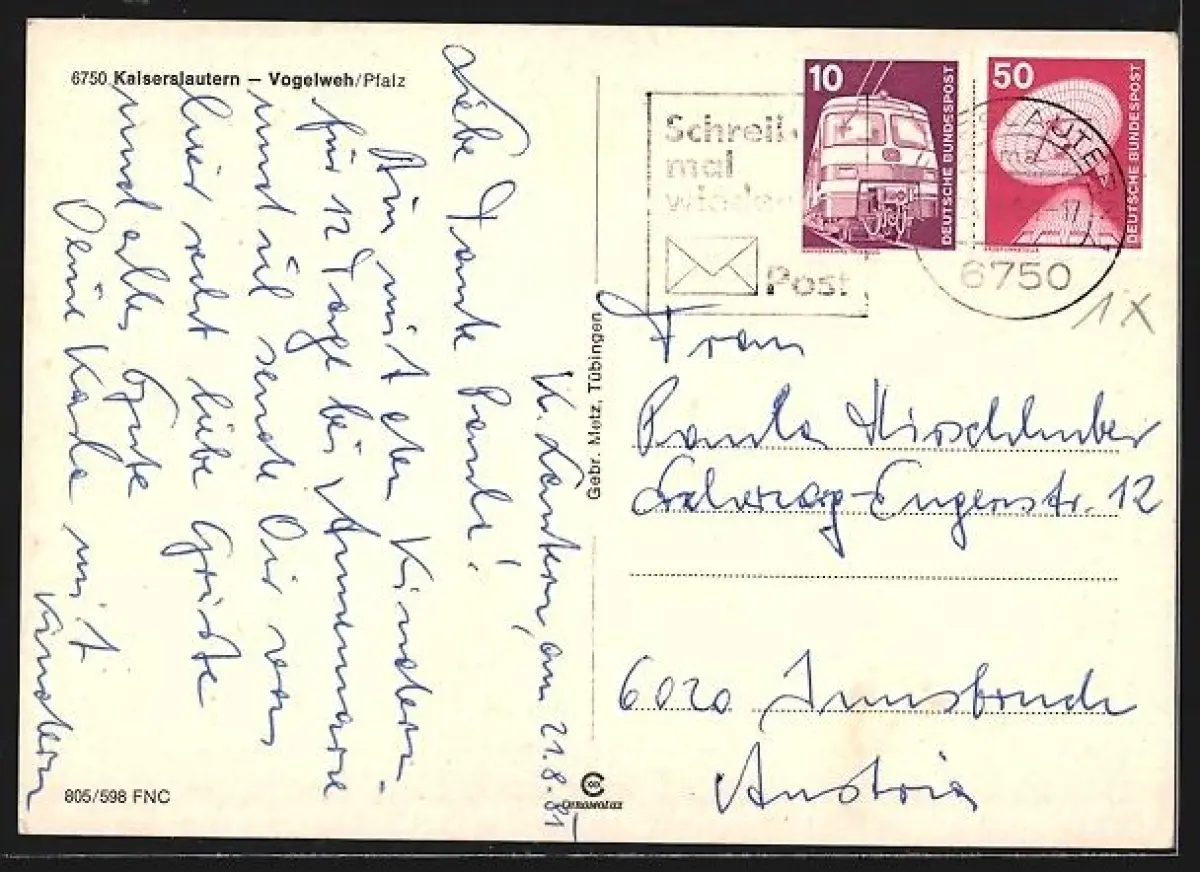 6750 Kaiserslautern – Vogelweh/Pfalz
K. Lautern, am 21.8.81
Liebe Tante Paula!
Bin mit den Kindern
für 12 Tage bei Annemarie
und will sende Dir von
hier recht liebe Grüße
und alles Gute
Deine Karla mit
Kindern
805/598 FNC
Gebr. Metz, Tübingen
Schreib
mal
wieder
Post
10
DEUTSCHE BUNDESPOST
50
DEUTSCHE BUNDESPOST
LAUTER
17
6750
1x
Frau
Paula Hirschhuber
Erzherzog-Eugenstr. 12
6020 Innsbruck
Austria